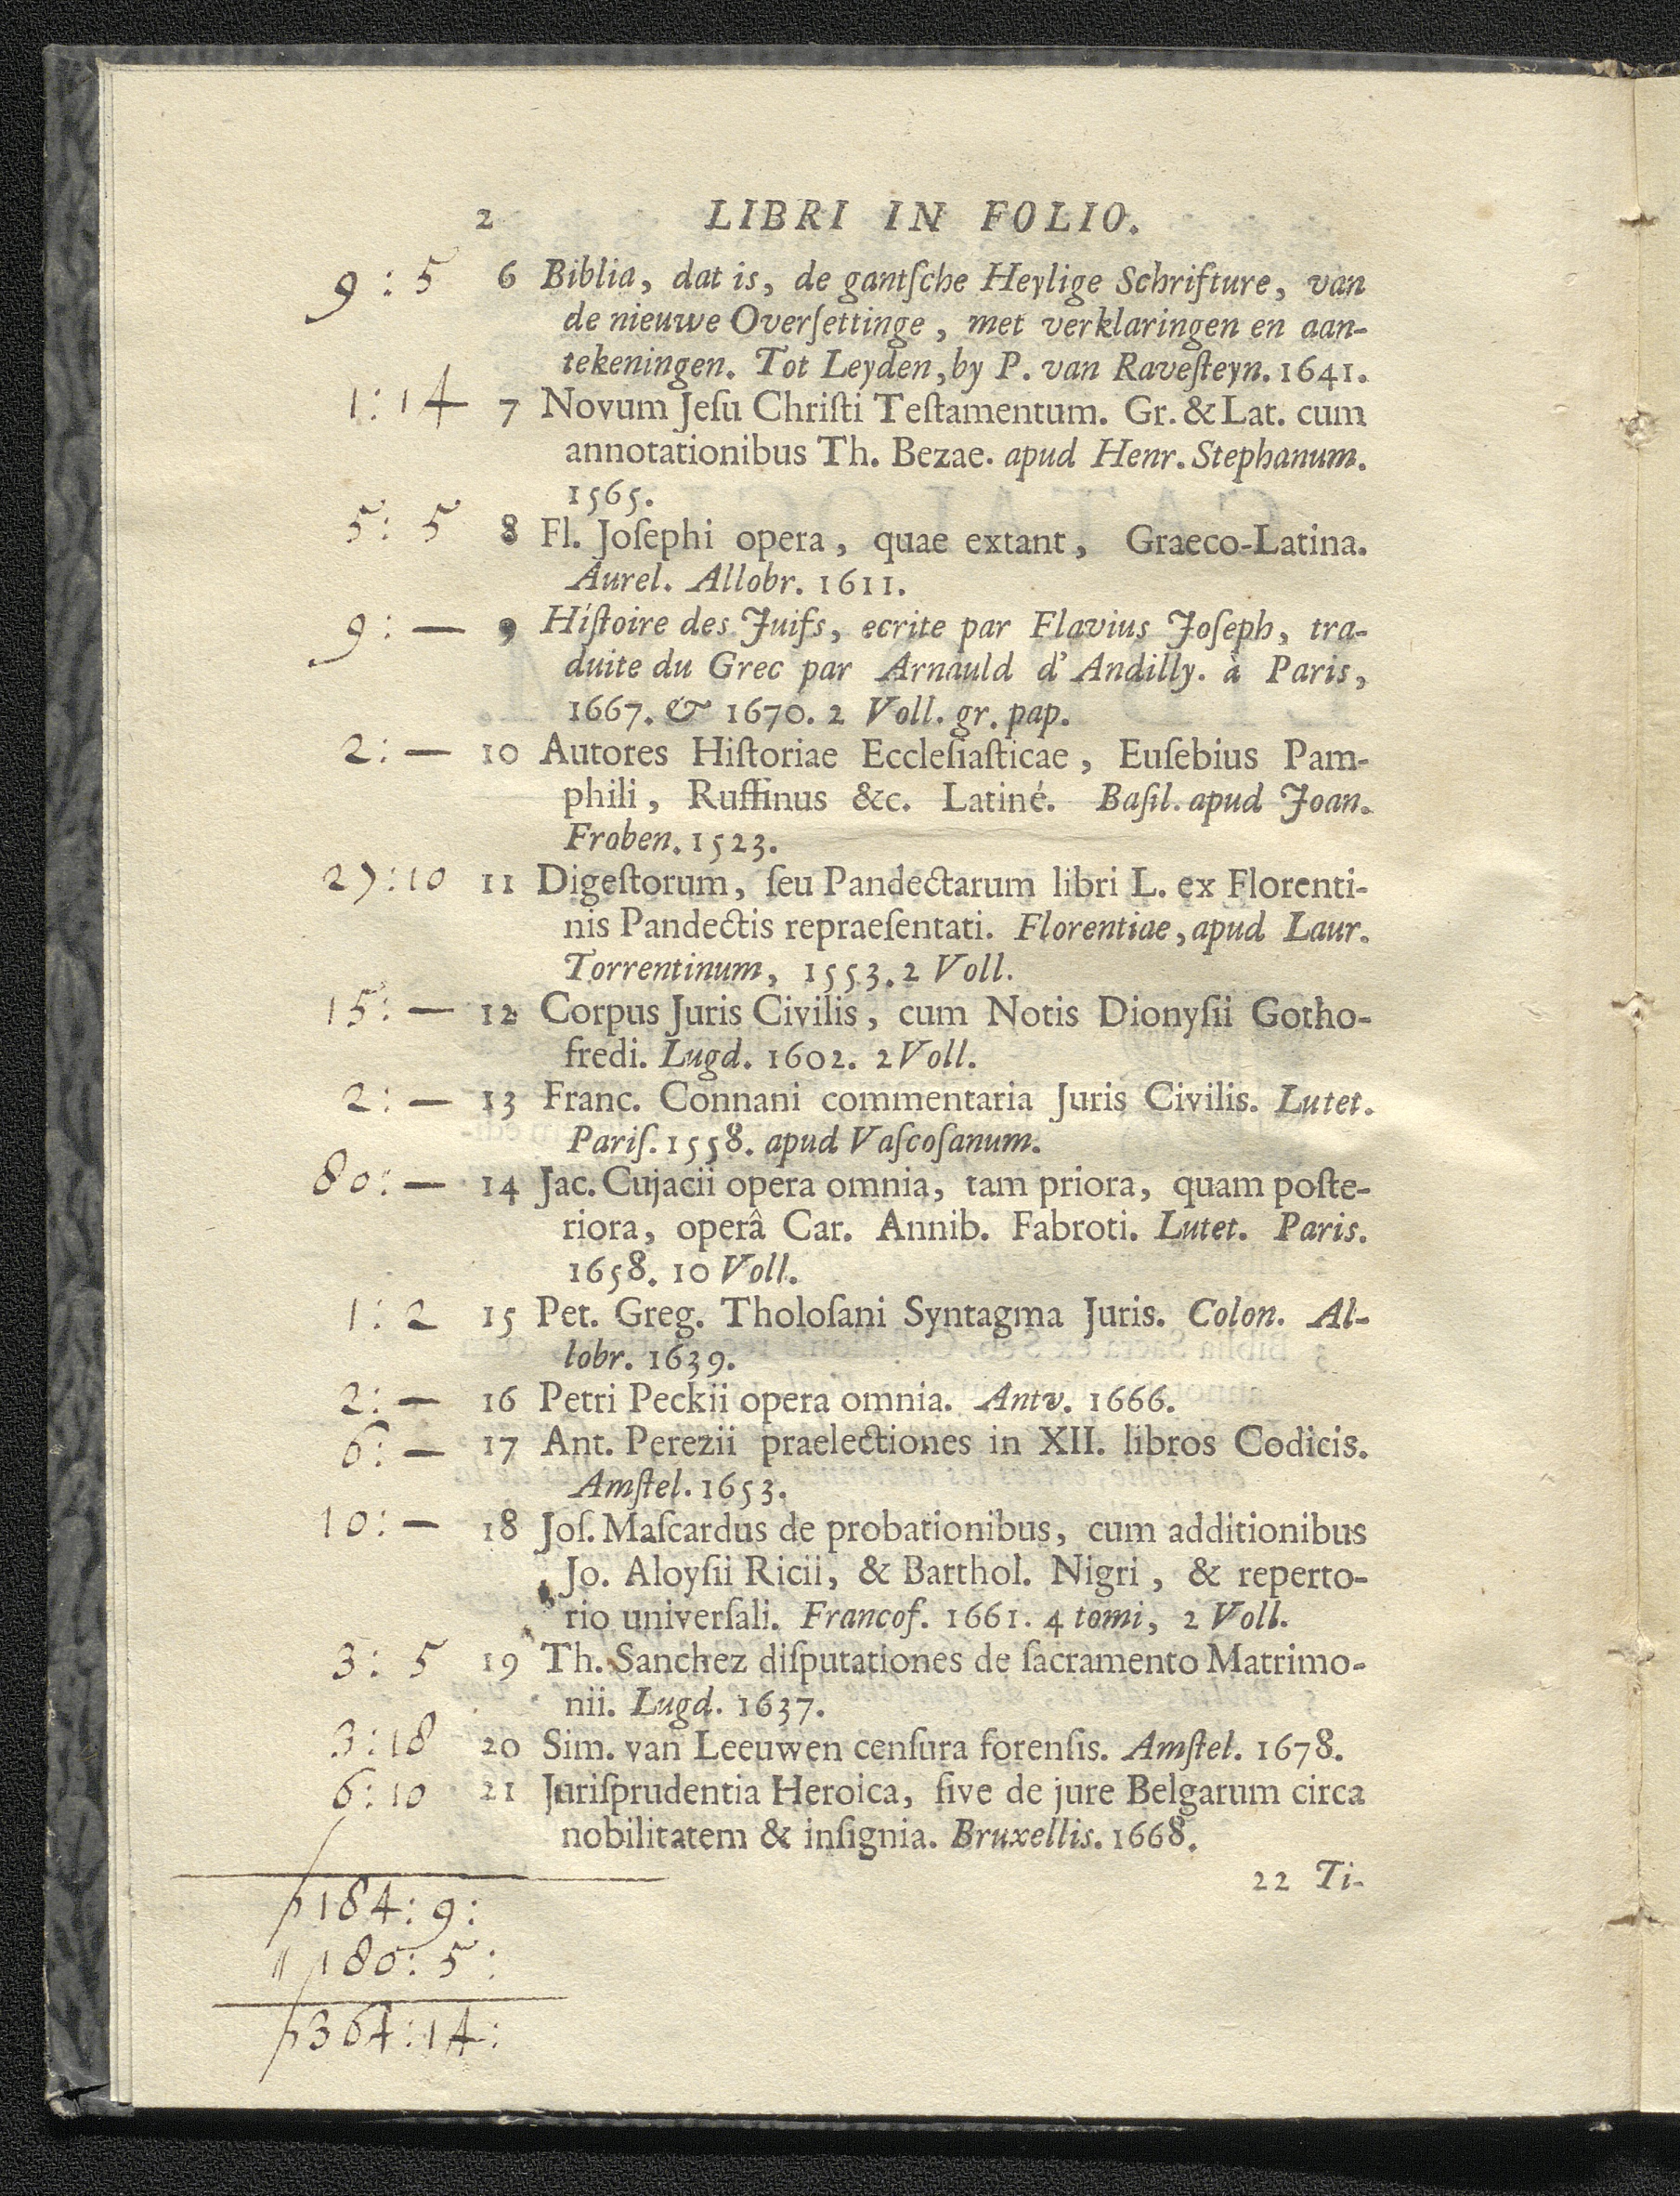 2 LIBRI IN FOLIO.
9 : 5 6 Biblia, dat is, de gantſche Heylige Schrifture, van
de nieuwe Overſettinge, met verklaringen en aan-
tekeningen. Tot Leyden, by P. van Raveſteyn. 1641.
1 : 14 7 Novum Jeſu Chriſti Teſtamentum. Gr. & Lat. cum
annotationibus Th. Bezae. apud Henr. Stephanum.
1565.
5 : 5 8 Fl. Joſephi opera, quae extant, Graeco-Latina.
Aurel. Allobr. 1611.
9 : — 9 Hiſtoire des Juifs, ecrite par Flavius Joſeph, tra-
duite du Grec par Arnauld d' Andilly. à Paris,
1667. & 1670. 2 Voll. gr. pap.
2 : — 10 Autores Hiſtoriae Eccleſiaſticae, Euſebius Pam-
phili, Ruffinus &c. Latiné. Baſil. apud Joan.
Froben. 1523.
27 : 10 11 Digeſtorum, ſeu Pandectarum libri L. ex Florenti-
nis Pandectis repraeſentati. Florentiae, apud Laur.
Torrentinum, 1553. 2 Voll.
15 : — 12 Corpus Juris Civilis, cum Notis Dionyſii Gotho-
fredi. Lugd. 1602. 2 Voll.
2 : — 13 Franc. Connani commentaria Juris Civilis. Lutet.
Pariſ. 1558. apud Vaſcoſanum.
80 : — 14 Jac. Cujacii opera omnia, tam priora, quam poſte-
riora, operâ Car. Annib. Fabroti. Lutet. Paris.
1658. 10 Voll.
1 : 2 15 Pet. Greg. Tholoſani Syntagma Juris. Colon. Al-
lobr. 1639.
2 : — 16 Petri Peckii opera omnia. Antv. 1666.
6 : — 17 Ant. Perezii praelectiones in XII. libros Codicis.
Amſtel. 1653.
10 : — 18 Joſ. Maſcardus de probationibus, cum additionibus
Jo. Aloyſii Ricii, & Barthol. Nigri, & reperto-
rio univerſali. Francof. 1661. 4 tomi, 2 Voll.
3 : 5 19 Th. Sanchez diſputationes de ſacramento Matrimo-
nii. Lugd. 1637.
3 : 18 20 Sim. van Leeuwen cenſura forenſis. Amſtel. 1678.
6 : 10 21 Juriſprudentia Heroica, ſive de jure Belgarum circa
nobilitatem & inſignia. Bruxellis. 1668.
22 Ti-
ƒ 184 : 9 :
" 180 : 5 :
ƒ 364 : 14 :